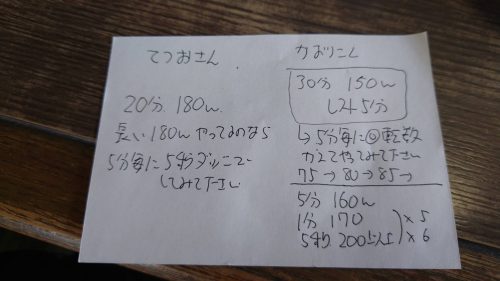 てつおさん
20分 180w
長い180wやってるのなら
5分毎に5秒ダッシュで
してみて下さい
かおりこし
30分 150w
レスト5分
↳5分毎に◎回転数
かえてやってみて下さい
75→80→85→
5分 160w
1分 170
5秒 200以上
×5
×6